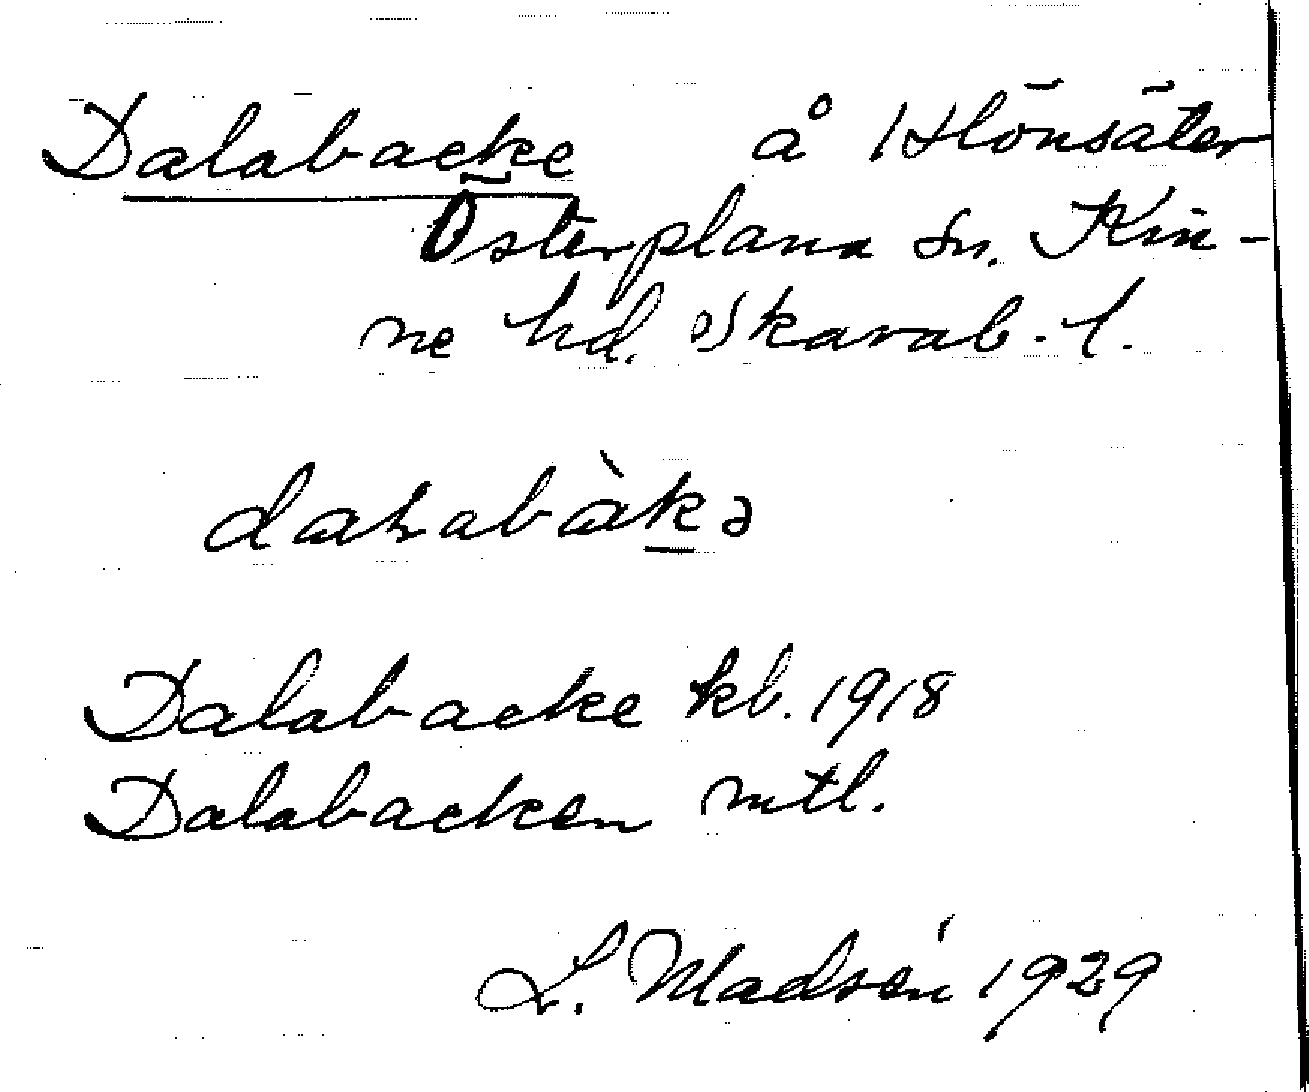 Dalabacke å Hönsäter
Österplana sn. Kin-
ne hd. Skarab. l.
daɫabàkə
Dalabacke kb. 1918
Dalabacken mtl.
L. Madsén 1929